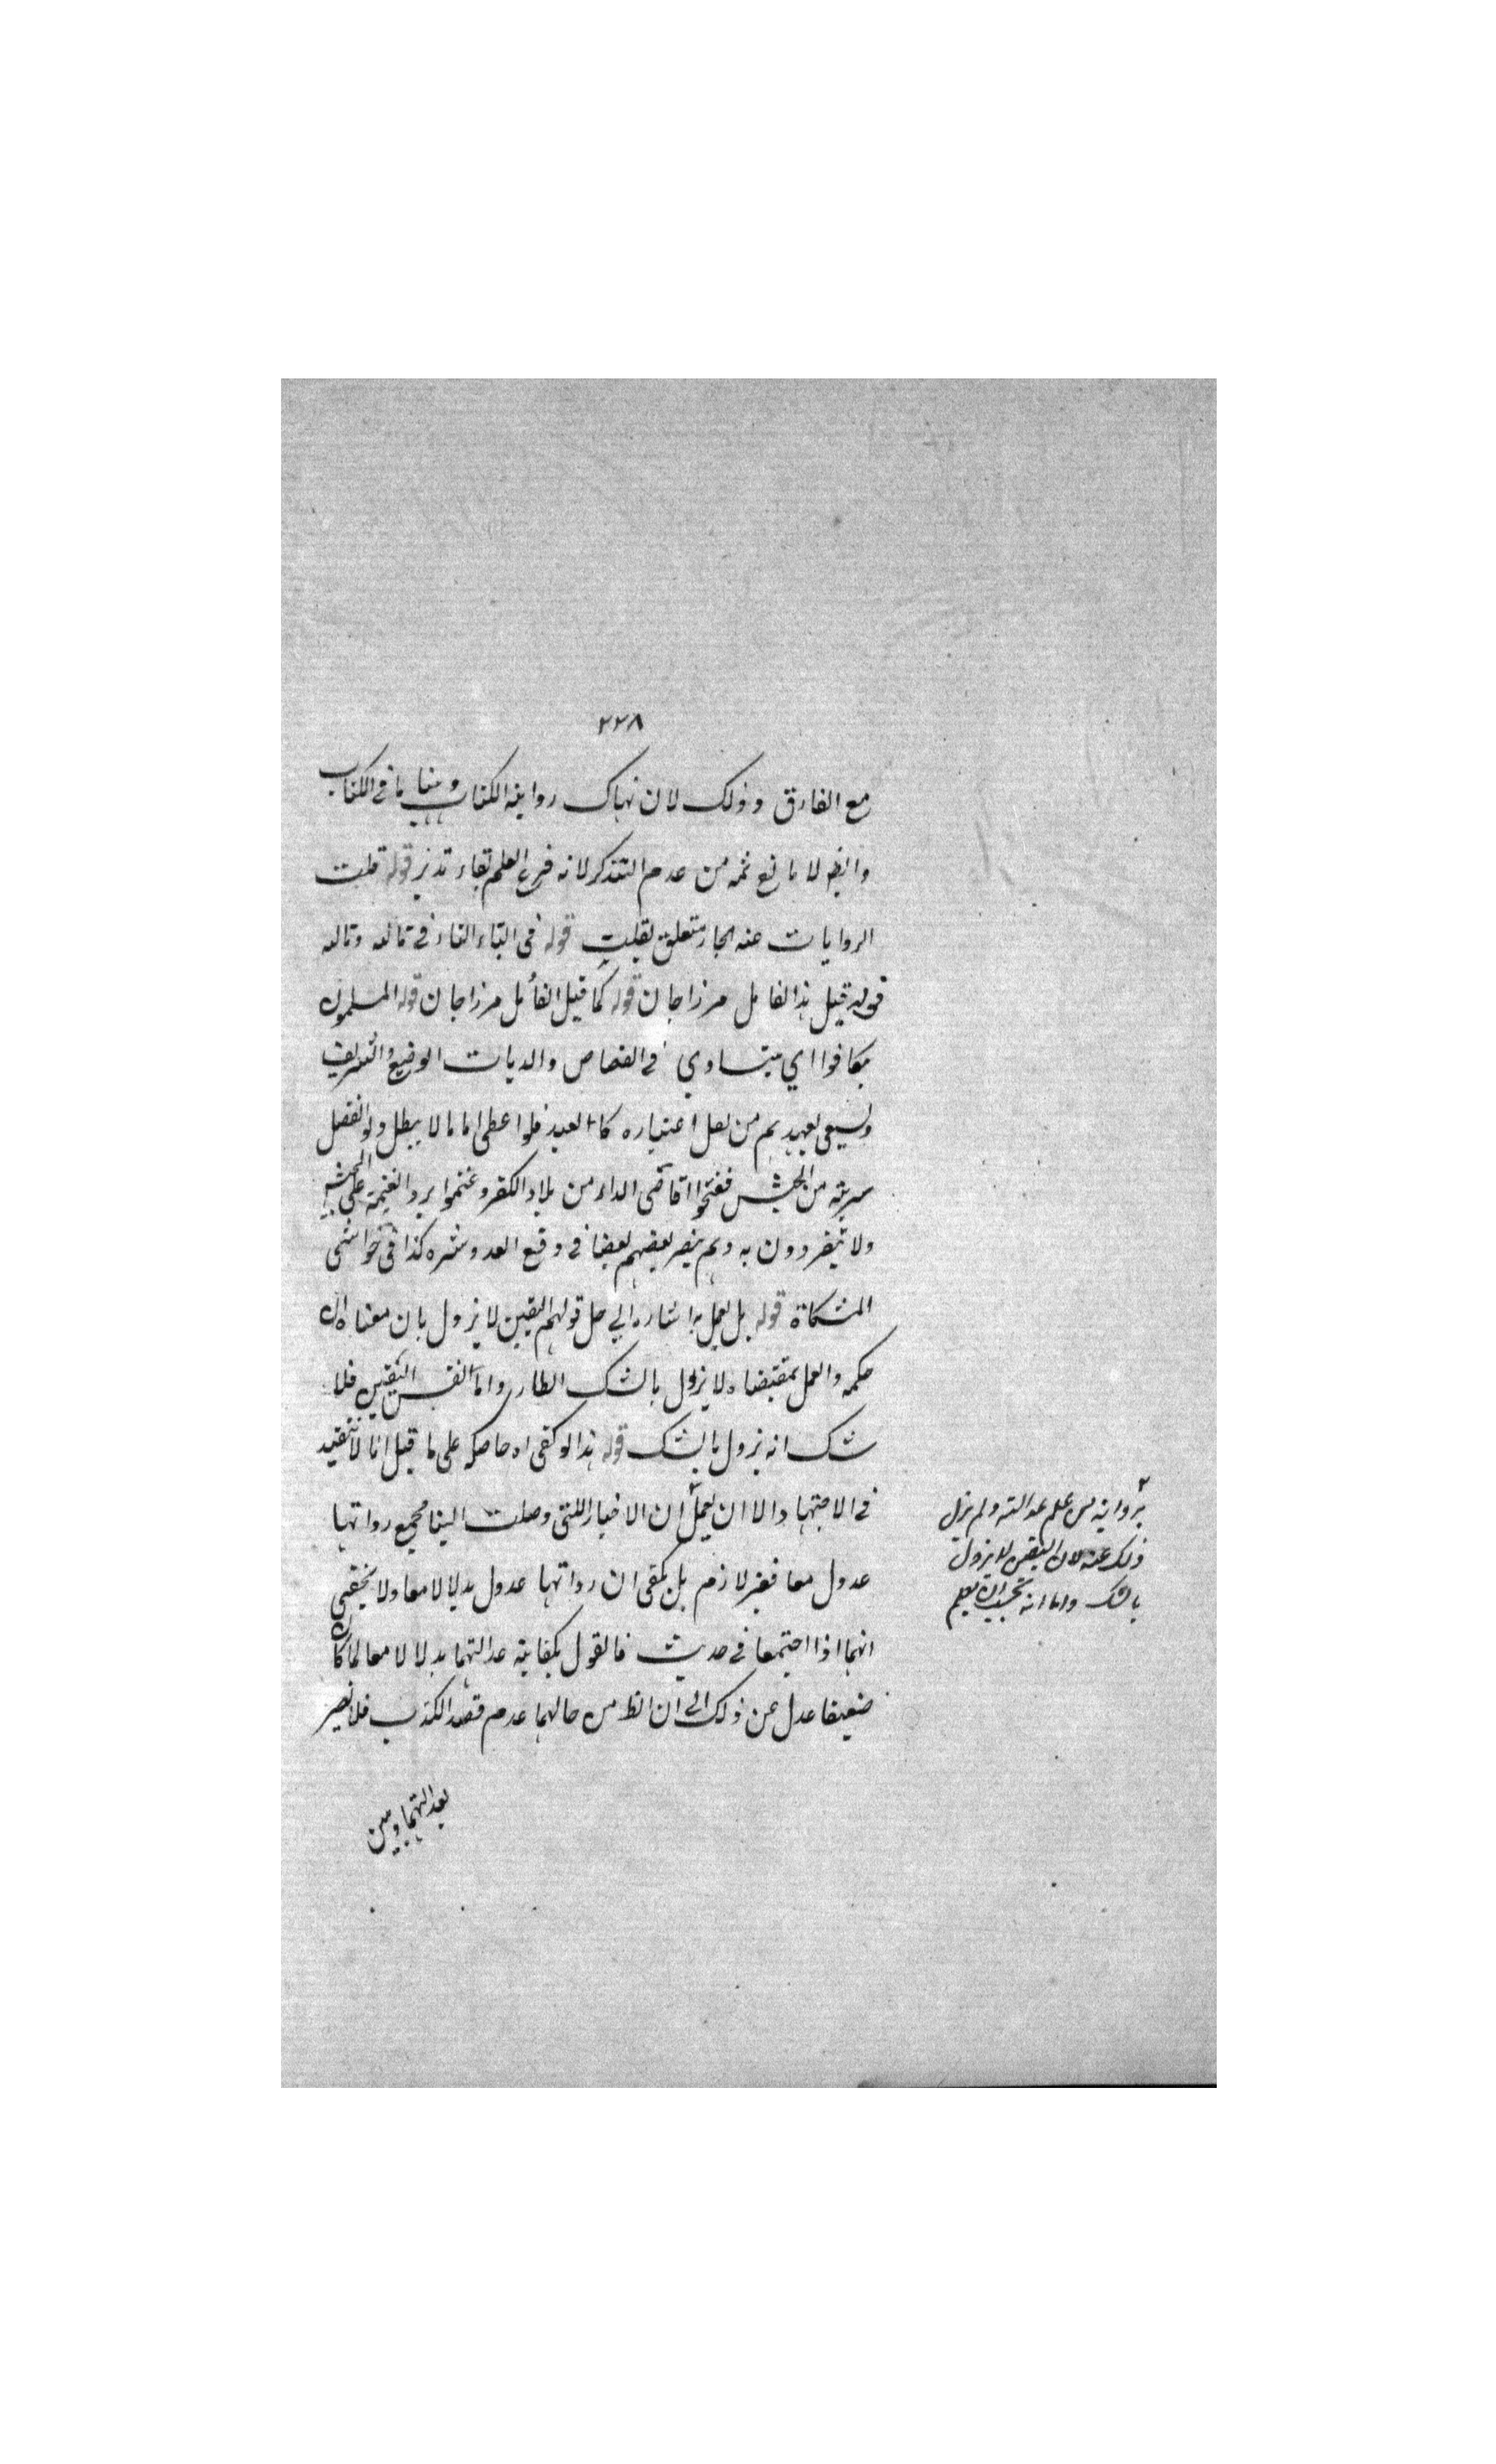 ٢٢٨
مع الفارق وذلك لان هناك رواية الكتاب وههنا ما في الكتاب
وايضا لا مانع ثمه من عدم التذكر لانه فرع العلم بقاء تدبر قوله قلبت
الروايات عنه الجار متعلق بقلبت قوله في التاء الفاء في قالعه وتالعه
قوله قيل هذا القائل مرزاجان قوله كما قيل القائل مرزاجان قوله المسلمون
تكافوا اي يتساوي في القصاص والديات الوضيع والشريف
ويسعى بعهدهم من لعل اعتباره كالعبد فلو اعطى اماما لا يبطل ولو انفصل
سرية من الجيش ففتحوا اقاصى الدار من بلاد الكفر وغنموا يرد الغنيمة على الجيش
ولا ينفردون به وهم ينصر بعضهم بعضا في دفع العدو وشره كذا في حواشى
المشكاة قوله بل يعمل به اشاره الي حل قولهم اليقين لا يزول بان معناه ان
حكمه والعمل بمقتضاه لا يزول بالشك الطار واما نفس اليقين فلا
شك انه يزول بالشك قوله هذا لو كفى اه حاصله على ما قيل انا لا نتقيد
في الاجتهاد الا ان يعمل ان الاخبار اللتى وصلت الينا مجمع رواتها
عدول معا فغير لازم بل يكفى ان رواتها عدول بدلا لا معا ولا يخفى
انهما اذا اجتمعا في حديث فالقول بكفاية عدالتهما بدلا لا معا لما كان
ضعيفا عدل عن ذلك الى ان الظ من حالهما عدم قصد الكذب فلا يضر
بعدالتهما ومن
٢
برواية من علم عدالته ولم يزل
ذلك عنه لان اليقين لا يزول
بالشك واما انه يجب ان يعلم